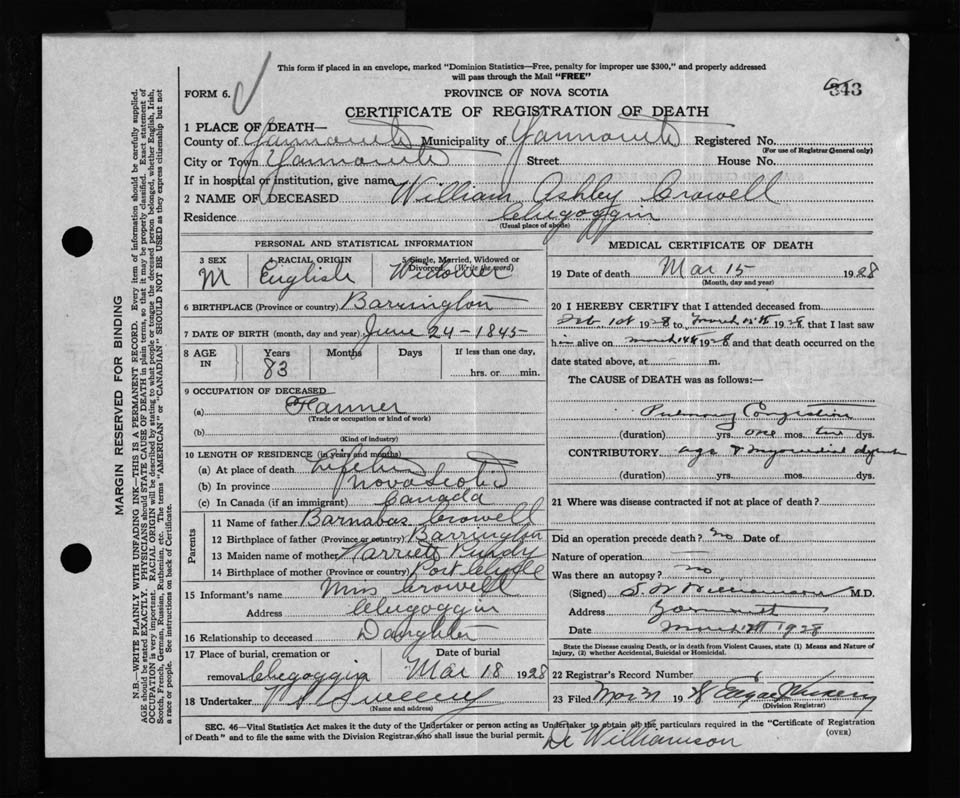 This form if placed in an envelope, marked "Dominion Statistics—Free, penalty for improper use $300," and properly addressed
will pass through the Mail "FREE"
FORM 6.
PROVINCE OF NOVA SCOTIA
343
CERTIFICATE OF REGISTRATION OF DEATH
1 PLACE OF DEATH—
County of Yarmouth Municipality of Yarmouth Registered No.
(For use of Registrar General only)
City or Town Yarmouth Street House No.
If in hospital or institution, give name
2 NAME OF DECEASED William Ashley Crowell
Residence Chegoggin
(Usual place of abode)
PERSONAL AND STATISTICAL INFORMATION
3 SEX
M
4 RACIAL ORIGIN
English
5 Single, Married, Widowed or
Divorced (Write the word)
Widower
6 BIRTHPLACE (Province or country) Barrington
7 DATE OF BIRTH (month, day and year) June 24-1845
8 AGE IN
Years Months Days If less than one day,
83 hrs. or min.
9 OCCUPATION OF DECEASED
(a) Farmer
(Trade or occupation or kind of work)
(b)
(Kind of industry)
10 LENGTH OF RESIDENCE (in years and months)
(a) At place of death Lifetime
(b) In province Nova Scotia
(c) In Canada (if an immigrant) Canada
Parents
11 Name of father Barnabas Crowell
12 Birthplace of father (Province or country) Barrington
13 Maiden name of mother Harriett
14 Birthplace of mother (Province or country) Port Clyde
15 Informant's name Miss Crowell
Address Chegoggin
16 Relationship to deceased Daughter
17 Place of burial, cremation or Date of burial
removal Chegoggin Mar 18 1928
18 Undertaker Sweeny
(Name and address)
MEDICAL CERTIFICATE OF DEATH
19 Date of death Mar 15 1928
(Month, day and year)
20 I HEREBY CERTIFY that I attended deceased from
Feb 1st 1928 to March 15th 1928 that I last saw
him alive on March 14th 1928 and that death occurred on the
date stated above, at m.
The CAUSE of DEATH was as follows:—
Pulmonary Congestion
(duration) yrs. one mos. ten dys.
CONTRIBUTORY age & myocardial
(duration) yrs. mos. dys.
21 Where was disease contracted if not at place of death?
Did an operation precede death? no Date of
Nature of operation
Was there an autopsy? no
(Signed) S. W Williamson M.D.
Address Yarmouth
Date March 1928
State the Disease causing Death, or in death from Violent Causes, state (1) Means and Nature of
Injury, (2) whether Accidental, Suicidal or Homicidal.
22 Registrar's Record Number
23 Filed Mar 31 1928 Edgar
(Division Registrar)
SEC. 46—Vital Statistics Act makes it the duty of the Undertaker or person acting as Undertaker to obtain all the particulars required in the "Certificate of Registration
of Death" and to file the same with the Division Registrar who shall issue the burial permit.
(OVER)
Dr Williamson
MARGIN RESERVED FOR BINDING
N.B.—WRITE PLAINLY WITH UNFADING INK—THIS IS A PERMANENT RECORD. Every item of information should be carefully supplied.
AGE should be stated EXACTLY. PHYSICIANS should STATE CAUSE OF DEATH in plain terms, so that it may be properly classified. Exact statement of
OCCUPATION is very important. RACIAL ORIGIN will be described by stating to what people or tongue the deceased person belonged, whether English, Irish,
Scotch, French, German, Russian, Ruthenian, etc. The terms "AMERICAN" or "CANADIAN" SHOULD NOT BE USED as they express citizenship but not
a race or people. See instructions on back of Certificate.